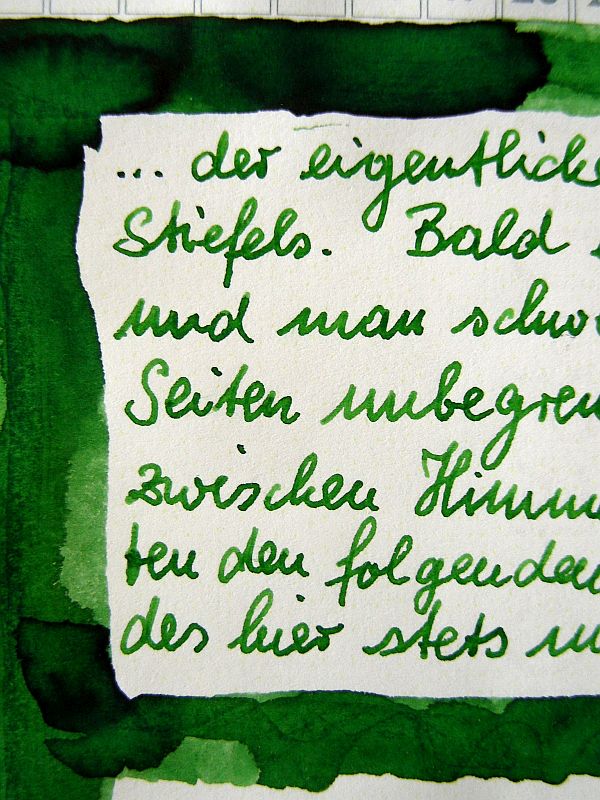 ... der eigentliche
Stiefels. Bald
und man schw
Seiten unbegren
zwischen Himm
ten den folgenden
des hier stets